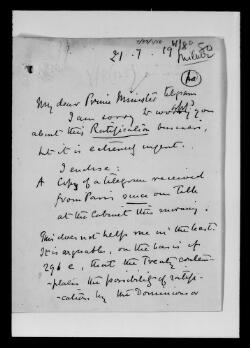 21. 7. 19
My dear Prime Minister
I am sorry to worry you
about this Ratification business,
but it is extremely urgent.
I enclose:
A Copy of a telegram received
from Paris since our talk
at the Cabinet this morning.
This does not help me in the least.
It is arguable, on the basis of
296 e, that the Treaty contem-
plates the possibility of ratifi-
cation by the Dominions or